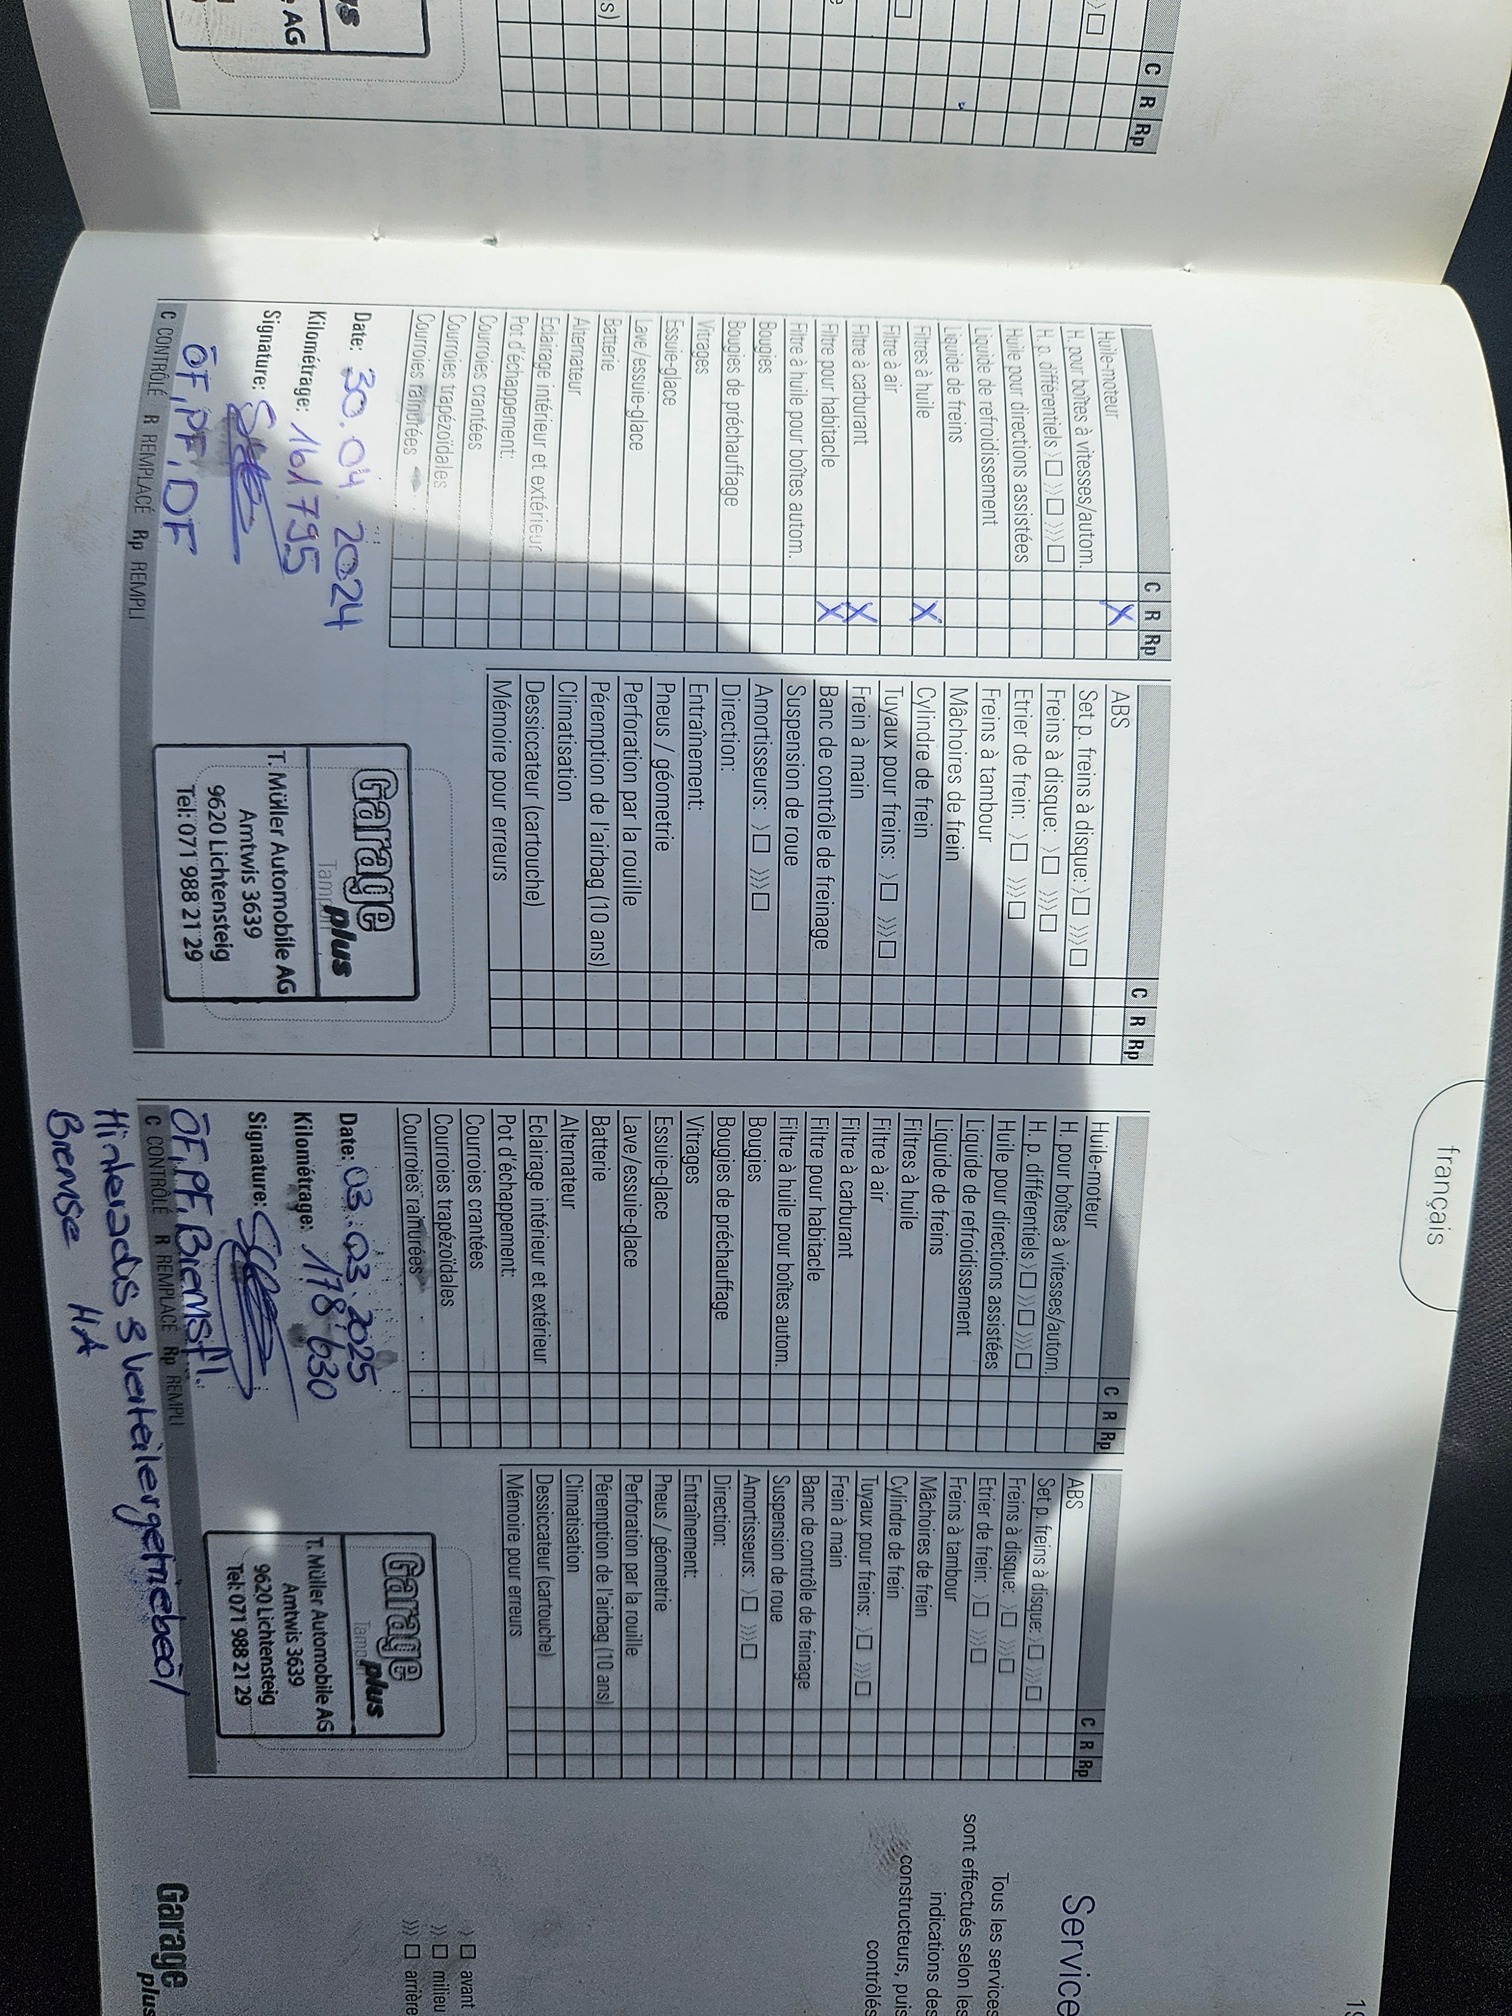 C R Rp
français
Huile-moteur
H. pour boîtes à vitesses/autom.
H. p. différentiels 〉□ 〉〉□ 〉〉〉□
Huile pour directions assistées
Liquide de refroidissement
Liquide de freins
Filtres à huile
Filtre à air
Filtre à carburant
Filtre pour habitacle
Filtre à huile pour boîtes autom.
Bougies
Bougies de préchauffage
Vitrages
Essuie-glace
Lave/essuie-glace
Batterie
Alternateur
Eclairage intérieur et extérieur
Pot d'échappement:
Courroies crantées
Courroies trapézoïdales
Courroies rainurées
C R Rp
X
X
X
X
Date: 30.04.2024
Kilométrage: 161795
Signature:
ÖF, PF, DF
C CONTRÔLÉ R REMPLACÉ Rp REMPLI
C R Rp
ABS
Set p. freins à disque: 〉□ 〉〉〉□
Freins à disque: 〉□ 〉〉〉□
Etrier de frein: 〉□ 〉〉〉□
Freins à tambour
Mâchoires de frein
Cylindre de frein
Tuyaux pour freins: 〉□ 〉〉〉□
Frein à main
Banc de contrôle de freinage
Suspension de roue
Amortisseurs: 〉□ 〉〉〉□
Direction:
Entraînement:
Pneus / géometrie
Perforation par la rouille
Péremption de l'airbag (10 ans)
Climatisation
Dessiccateur (cartouche)
Mémoire pour erreurs
Garage
plus
T. Müller Automobile AG
Amtwis 3639
9620 Lichtensteig
Tel: 071 988 21 29
Huile-moteur
H. pour boîtes à vitesses/autom.
H. p. différentiels 〉□ 〉〉□ 〉〉〉□
Huile pour directions assistées
Liquide de refroidissement
Liquide de freins
Filtres à huile
Filtre à air
Filtre à carburant
Filtre pour habitacle
Filtre à huile pour boîtes autom.
Bougies
Bougies de préchauffage
Vitrages
Essuie-glace
Lave/essuie-glace
Batterie
Alternateur
Eclairage intérieur et extérieur
Pot d'échappement:
Courroies crantées
Courroies trapézoïdales
Courroies rainurées
C R Rp
Date: 03.03.2025
Kilométrage: 178630
Signature:
ÖF, PF, Bremsfl.
C CONTRÔLÉ R REMPLACÉ Rp REMPLI
Hinterads & Verteilergetriebeöl
Bremse HA
C R Rp
ABS
Set p. freins à disque: 〉□ 〉〉〉□
Freins à disque: 〉□ 〉〉〉□
Etrier de frein: 〉□ 〉〉〉□
Freins à tambour
Mâchoires de frein
Cylindre de frein
Tuyaux pour freins: 〉□ 〉〉〉□
Frein à main
Banc de contrôle de freinage
Suspension de roue
Amortisseurs: 〉□ 〉〉〉□
Direction:
Entraînement:
Pneus / géometrie
Perforation par la rouille
Péremption de l'airbag (10 ans)
Climatisation
Dessiccateur (cartouche)
Mémoire pour erreurs
Garage
plus
T. Müller Automobile AG
Amtwis 3639
9620 Lichtensteig
Tel: 071 988 21 29
Service
Tous les services
sont effectués selon les
indications des
constructeurs, puis
contrôlés
〉□ avant
〉〉□ milieu
〉〉〉□ arrière
Garage
plus